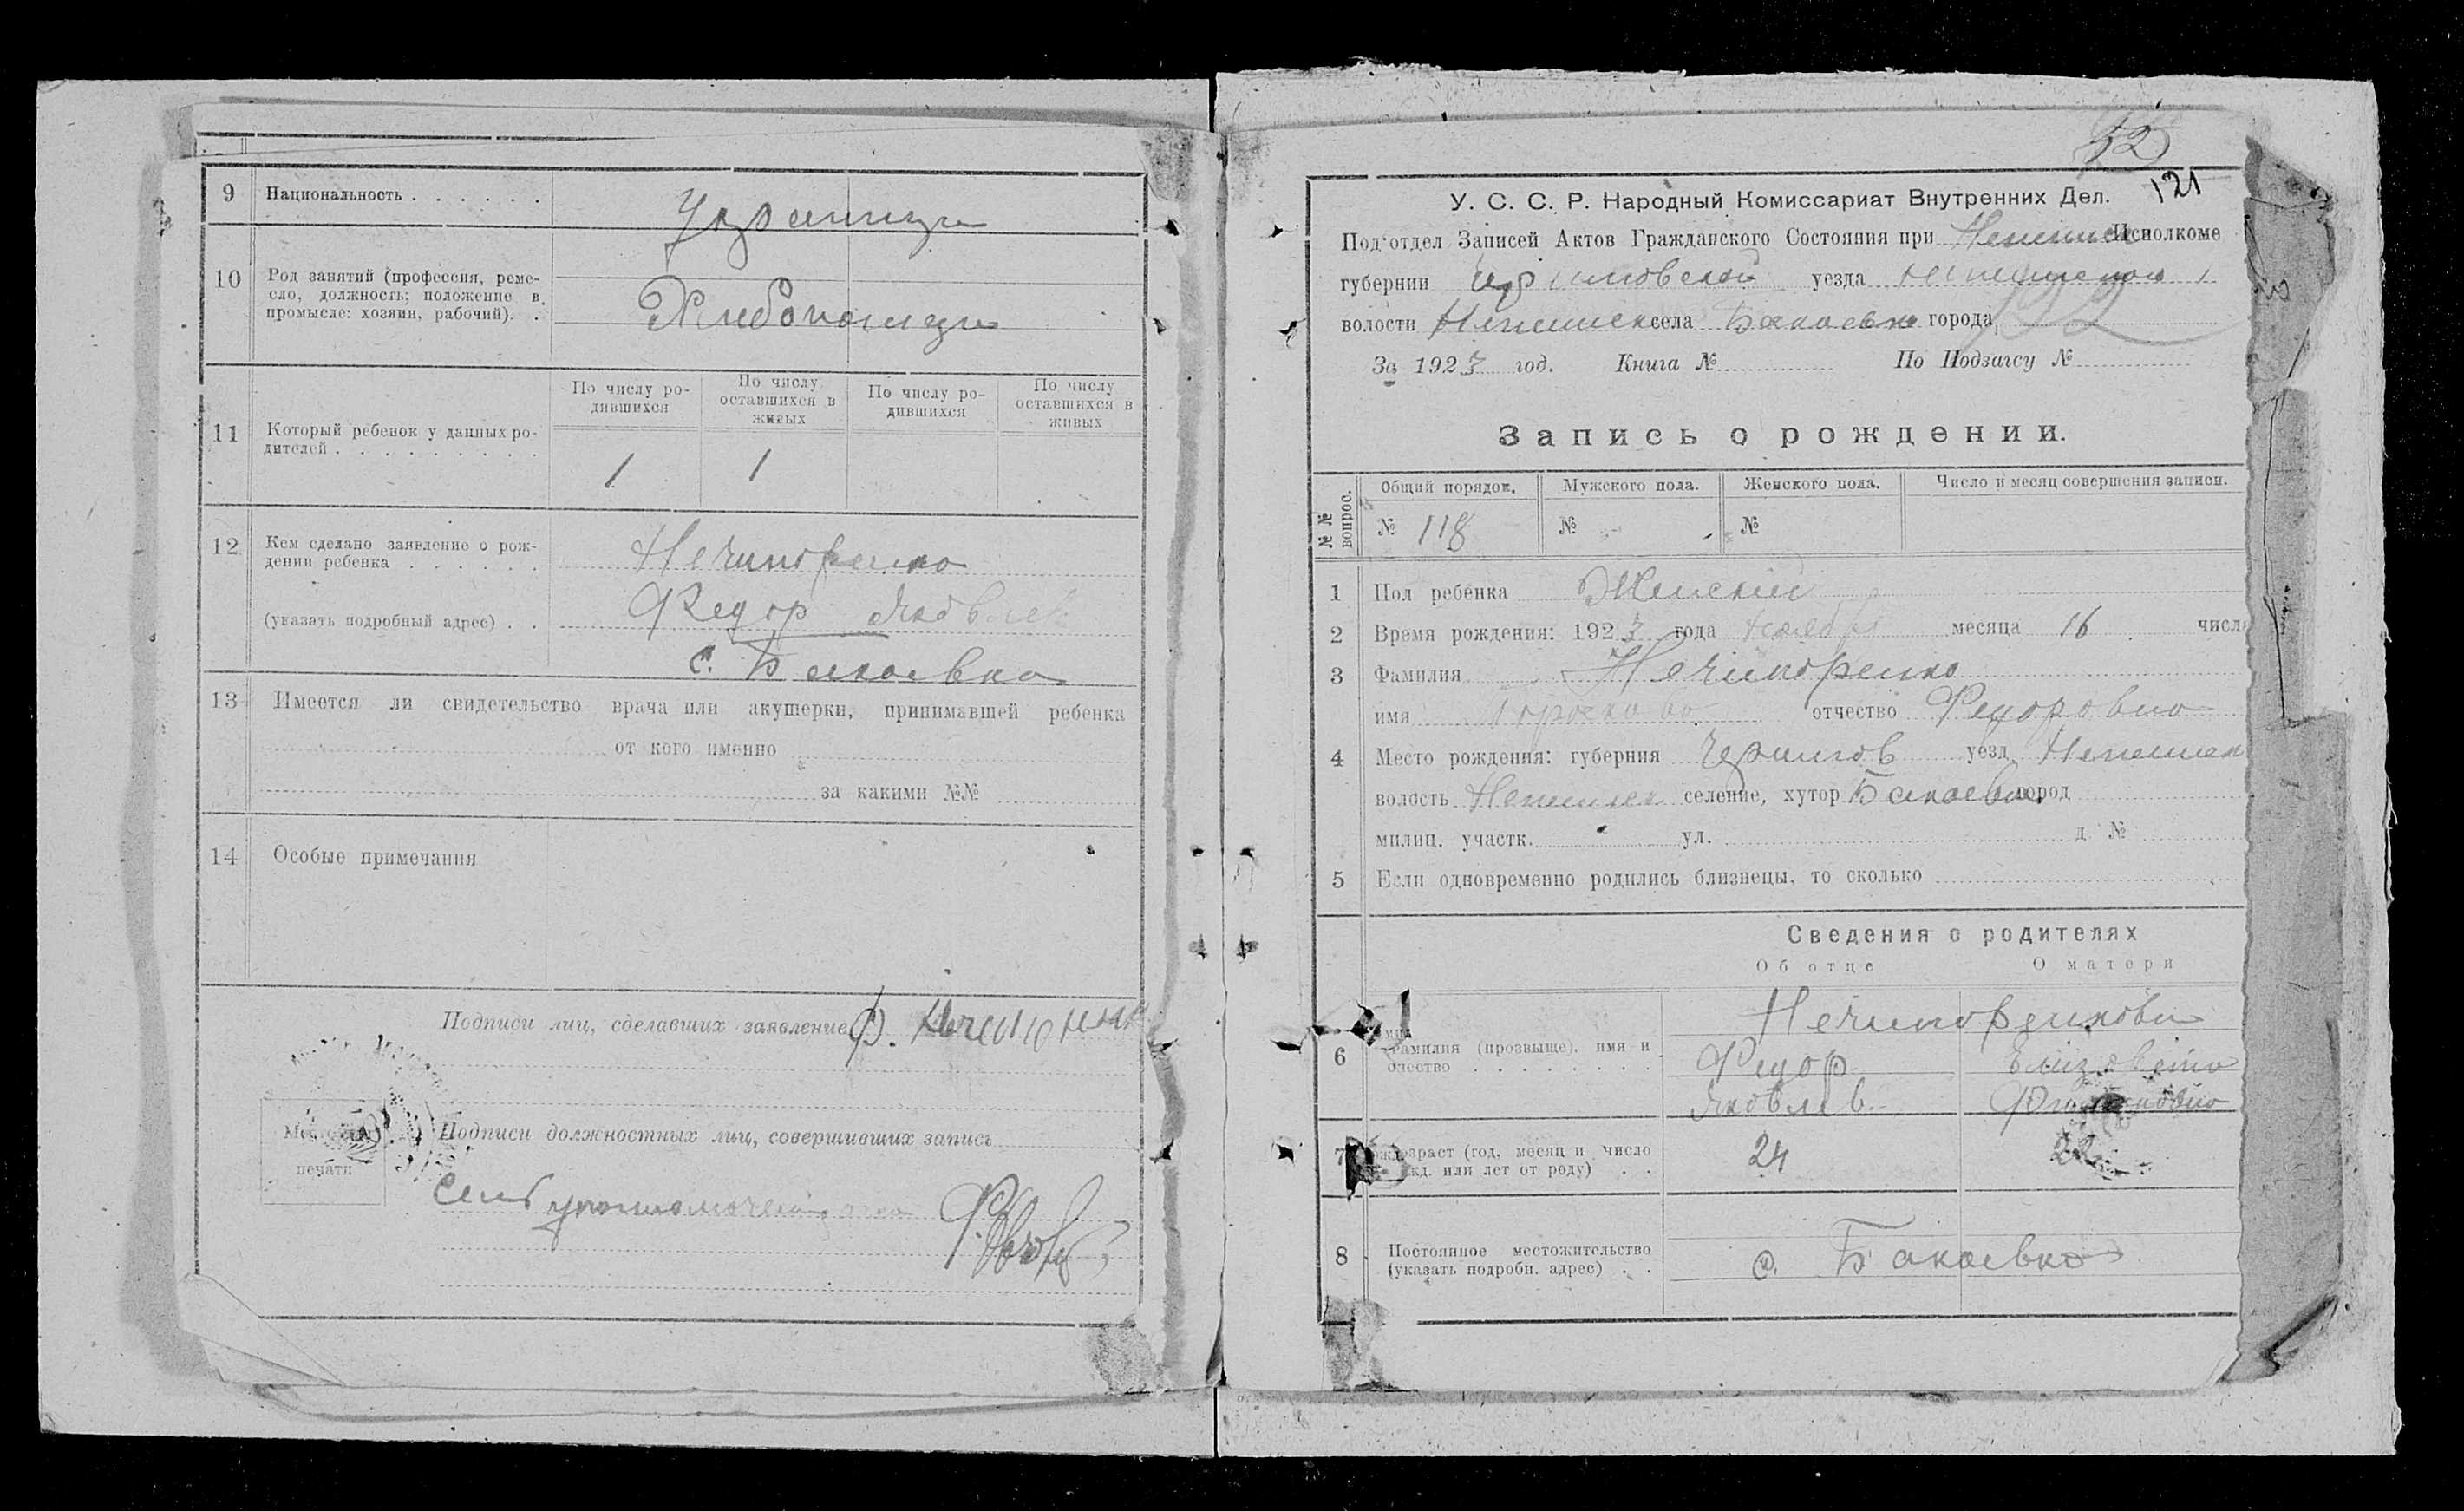 9 Национальность . . . . . .
Украинцы
10 Род занятий (профессия, реме-
сло, должность; положение в
промысле: хозяин, рабочий). .
Хлебопашцы
11 Который ребенок у данных ро-
дителей . . . . . . . . .
По числу ро-
дившихся
По числу
оставшихся в
живых
По числу ро-
дившихся
По числу
оставшихся в
живых
1 1
12 Кем сделано заявление о рож-
дении ребенка . . . . . .
Нечипоренко
(указать подробный адрес) . .
Федор Яковлев
с. Бакаевка
13 Имеется ли свидетельство врача или акушерки, принимавшей ребенка
от кого именно
за какими №№
14 Особые примечания
Подписи лиц, сделавших заявление Ф.
Место
печати
Подписи должностных лиц, совершивших запись
52
121
У. С. С. Р. Народный Комиссариат Внутренних Дел.
Под'отдел Записей Актов Гражданского Состояния при Исполкоме
губернии Черниговской уезда
волости села Бакаевка города
За 1923 год. Книга № По Подзагсу №
Запись о рождении.
№№ вопрос.
Общий порядок. Мужского пола. Женского пола. Число и месяц совершения записи.
№ 118 № - №
1 Пол ребенка Женский
2 Время рождения: 1923 года Ноября месяца 16 числа
3 Фамилия Нечипоренко
имя отчество Федоровна
4 Место рождения: губерния Чернигов уезд
волость селение, хутор Бакаевка город
милиц. участк. ул. д №
5 Если одновременно родились близнецы, то сколько
Сведения о родителях
Об отце О матери
6 Фамилия (прозвище), имя и
отчество . . . . . . . .
Нечипоренковы
Федор Елизавета
Яковлев.
7 Возраст (год, месяц и число
рожд. или лет от роду) . .
24 22
8 Постоянное местожительство
(указать подробн. адрес) . .
с. Бакаевка